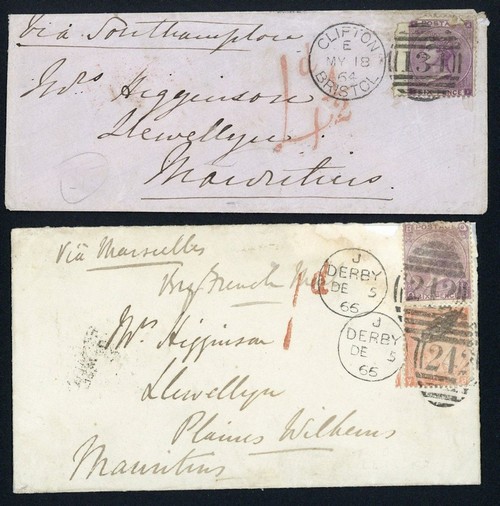 Via Southampton
CLIFTON
E
MY 18
64
BRISTOL
134
POSTA
1d
1/2
Mrs Higginson
Llewellyn
Mauritius
Via Marseilles
J
DERBY
DE 5
66
J
DERBY
DE 5
66
POSTA
242
242
1d
Mrs Higginson
Llewellyn
Plaines Wilhems
Mauritius